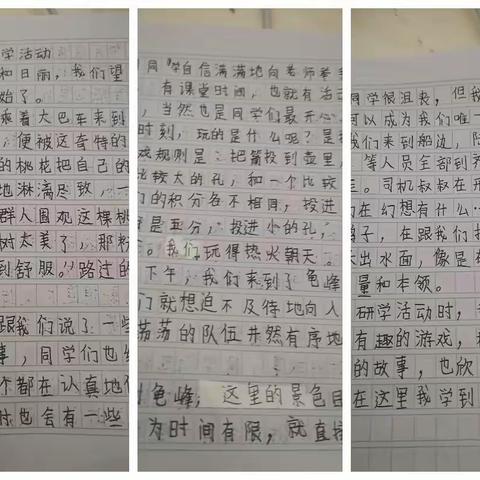 学活动
和日丽,我们望
始了。
乘着大巴车来到
,便被这奇特的
的桃花把自己的
地淋漓尽致,一
群人围观这棵桃
树太美了,那粉
到舒服,路过的
跟我们说了一些
事,同学们也
个都在认真地
时也会有一些
同学自信满满地向老师着手
有课堂时间,也就有活
,当然也是同学们最开心
时刻,玩的是什么呢?是
戏规则是:把箭投到壶里,
比较大的孔,和一个比较
们的积分各不相同,投进
是五分,投进小的孔,
。我们玩得热火朝天
下午,我们来到了龟峰
们就想迫不及待地向人
荡荡的队伍井然有序地
龟峰;这里的景色目
为时间有限,就直接
同学很沮丧,但我
可以成为我们唯一
我们来到船边,
等人员全部到
。司机叔叔在开
在幻想有什么…
鸽子,在跟我们
出水面,像是在
量和本领。
研学活动时,
有趣的游戏,
的故事,也欣
在这里我学到